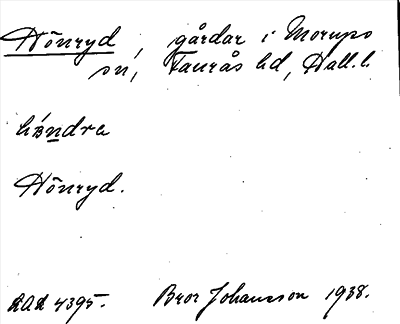 Hönryd, gårdar i Morups
sn, Faurås hd, Hall. l.
Hönryd.
AAL 4395. Bror Johansson 1938.